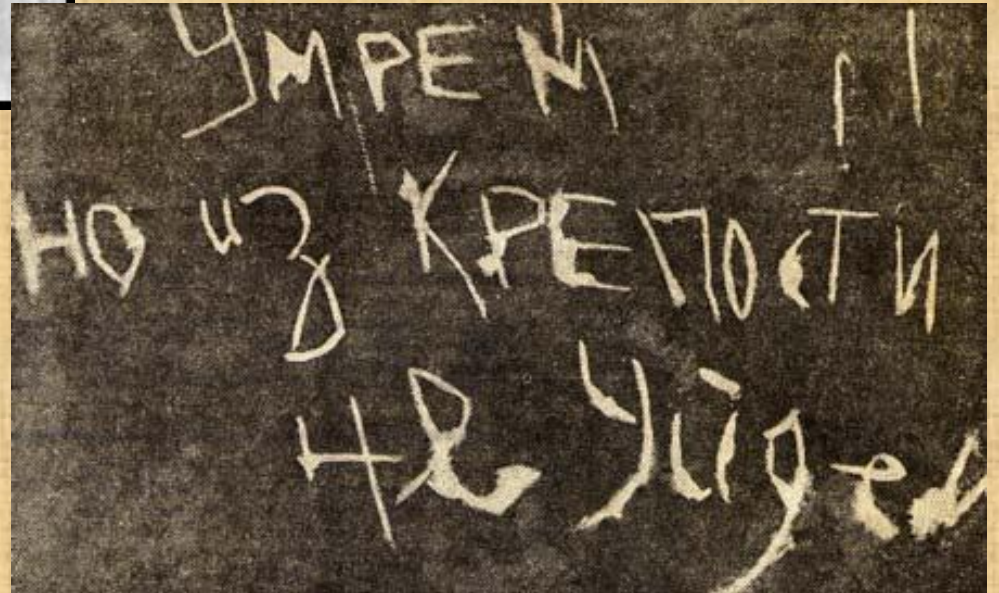 УМРЕМ
но из КРЕПОСТИ
не Уйдем